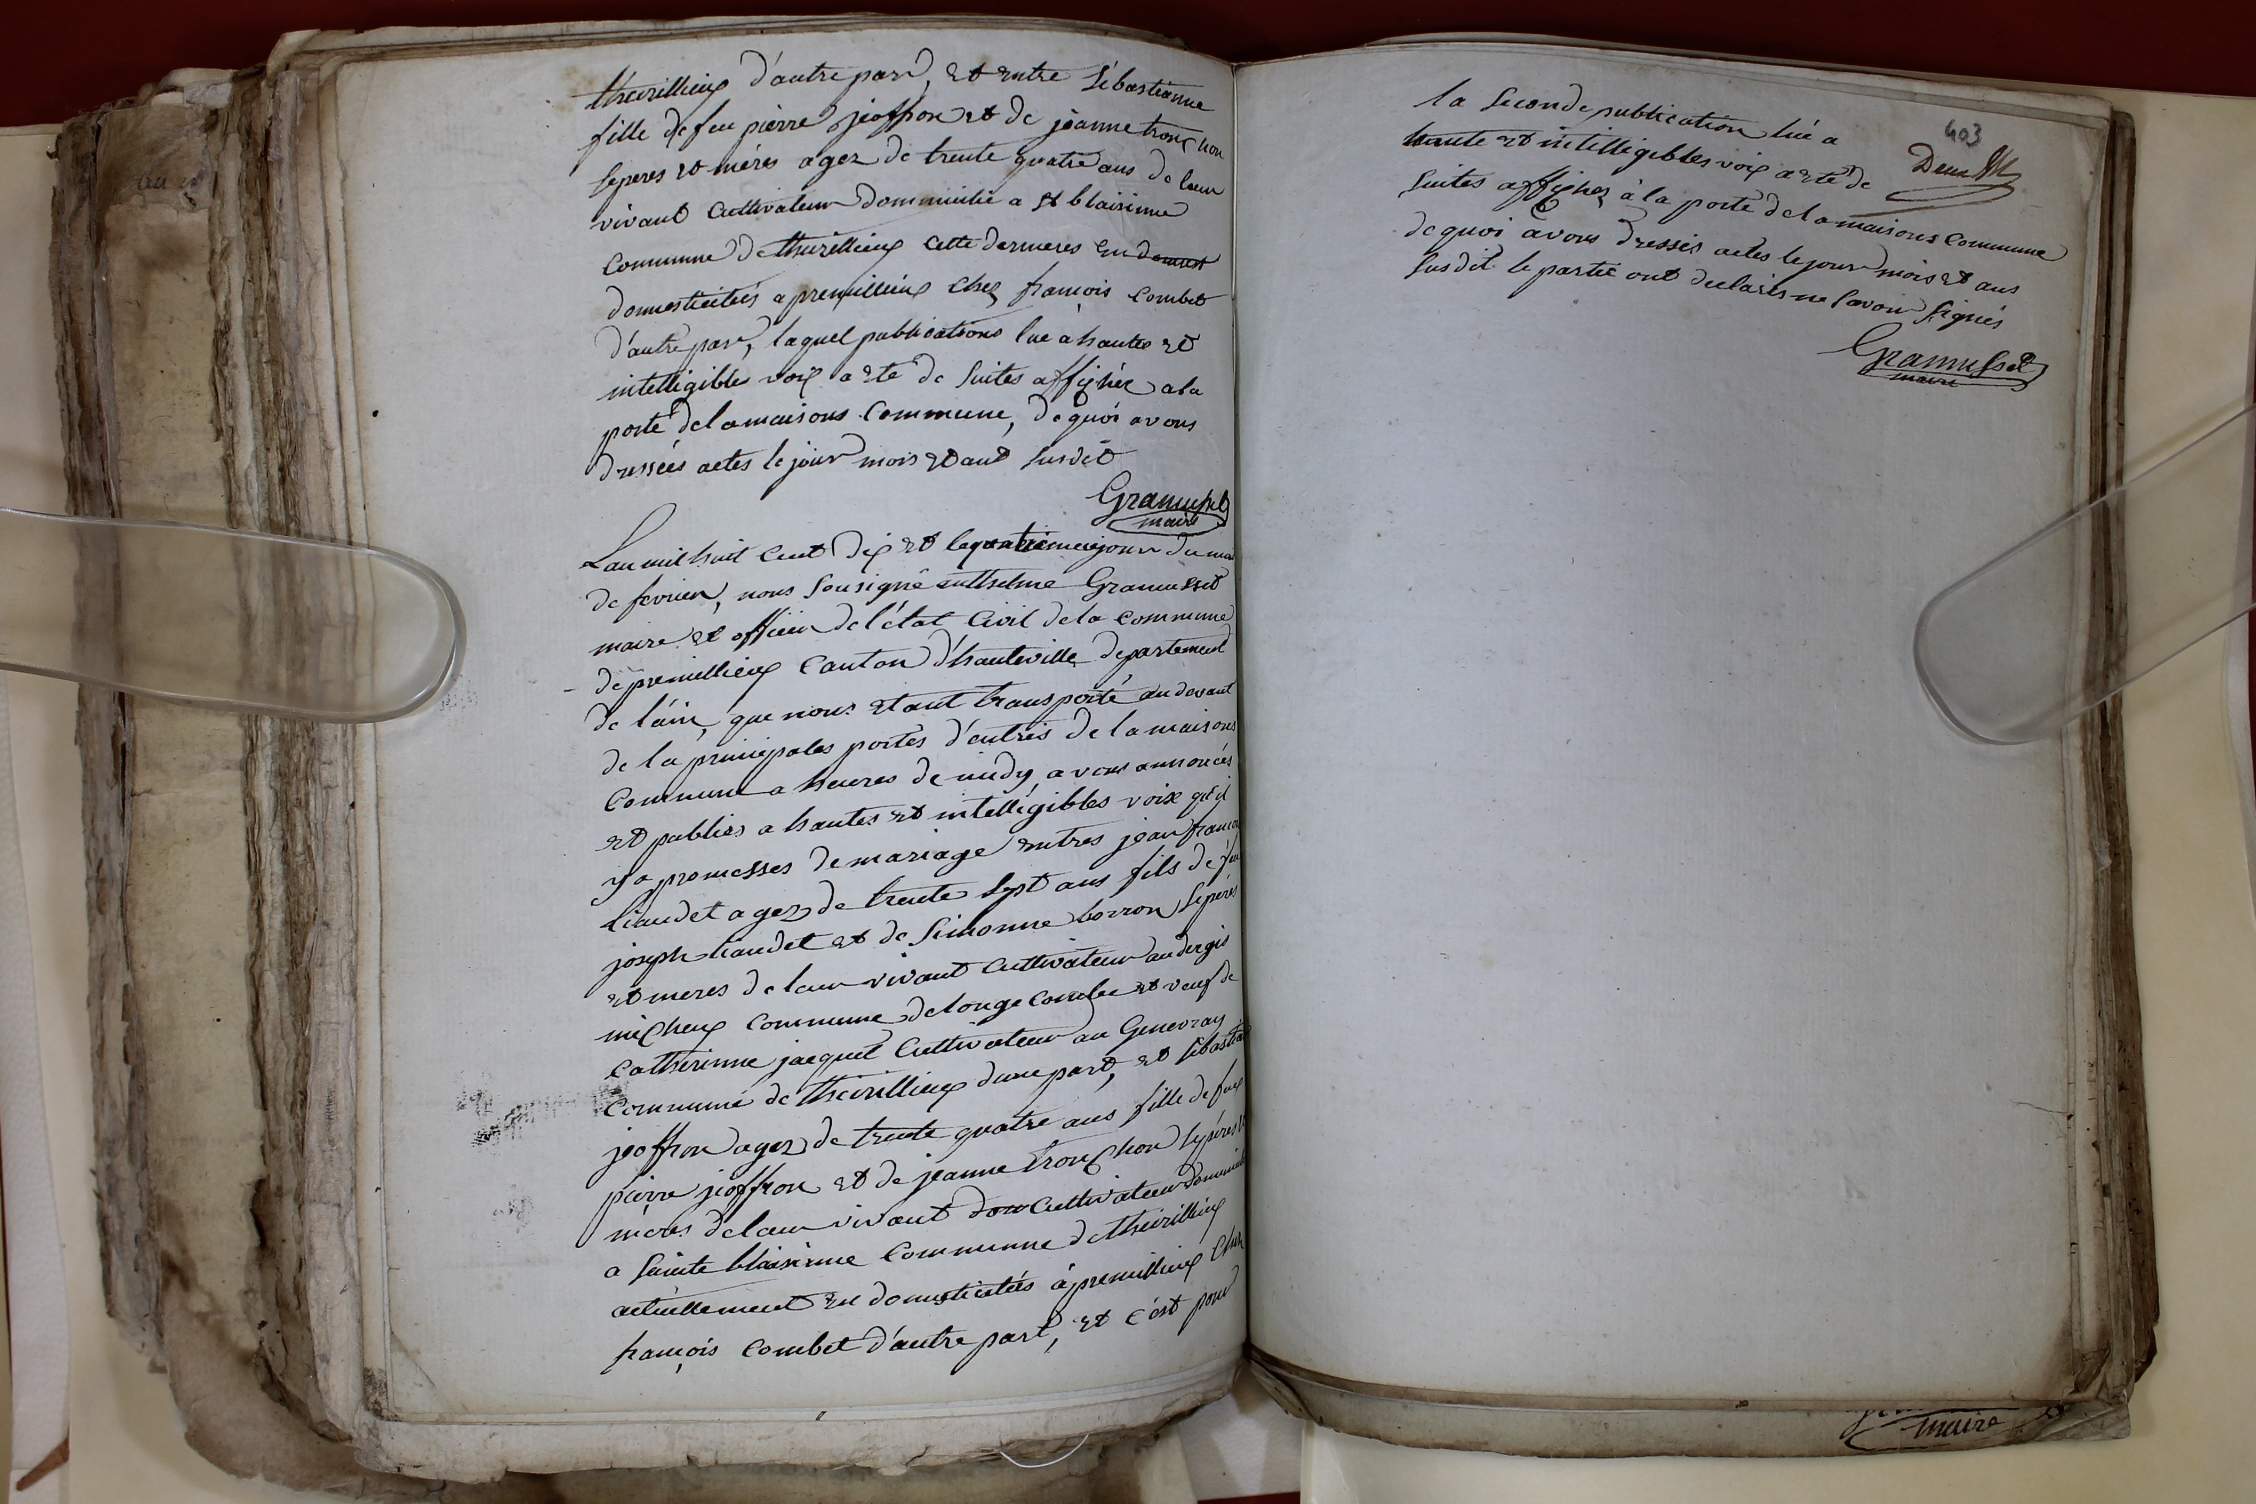 theizillieux d'autre part, et entre Sébastianne
fille de feu pierre jeoffron et de jeanne tronchon
se peres et mères agez de trente quatre ans de leur
vivant Cultivateur dommicilié a St blaisinne
Commune de theizillieux cette dernieres en domest
domesticités a premillieux chez françois Combet
d'autre part, laquel publications lue à hautes et
intelligibles voix a eté de suites affichée a la
porte de la maisons Commune, de quoi avons
dressées actes le jour mois et ans susdit
Gramusset
maire
L'an mil huit Cent dix et le quatriemes jour du mois
de fevrier, nous sousigné anthelme Gramusset
maire et officier de l'état Civil de la Commune
de premillieux Canton d'hauteville departement
de l'ain, que nous etant transporté au devant
de la principales portes d'entrés de la maisons
Commune a heures de midy, avons annoncés
et publiés a hautes et intelligibles voix qu'il
y a promesses de mariage entres jean françois
liaudet agez de trente sept ans fils de feu
joseph liaudet et de Simonne borron se pères
et meres de leur vivant Cultivateur au dergis
micheux Commune de longe Combe et veuf de
Catherinne jacquet Cultivateur au Genevray
Commune de theizillieux d'une part, et Sebastianne
jeoffron agez de trente quatre ans fille de feu
pierre jeoffron et de jeanne tronchon se pères et
mères de leur vivant dom Cultivateur dommicilié
a Sainte blaisinne Commune de theizillieux
actuellement en domesticités à premillieux Chez
françois Combet d'autre part, et c'est pour
403
la Seconde publication lue a
haute et intilligibles voix a eté de
suites affichez à la porte de la maisons Commune
de quoi avons dressés actes le jour mois et ans
susdit le partie ont declarés ne savoir signés
Gramusset
maire
maire